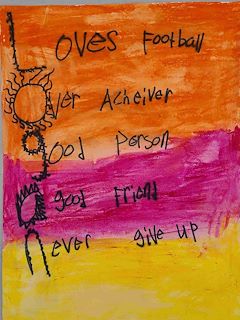 Loves Football
Over Acheiver
Good Person
A good Friend
Never give up